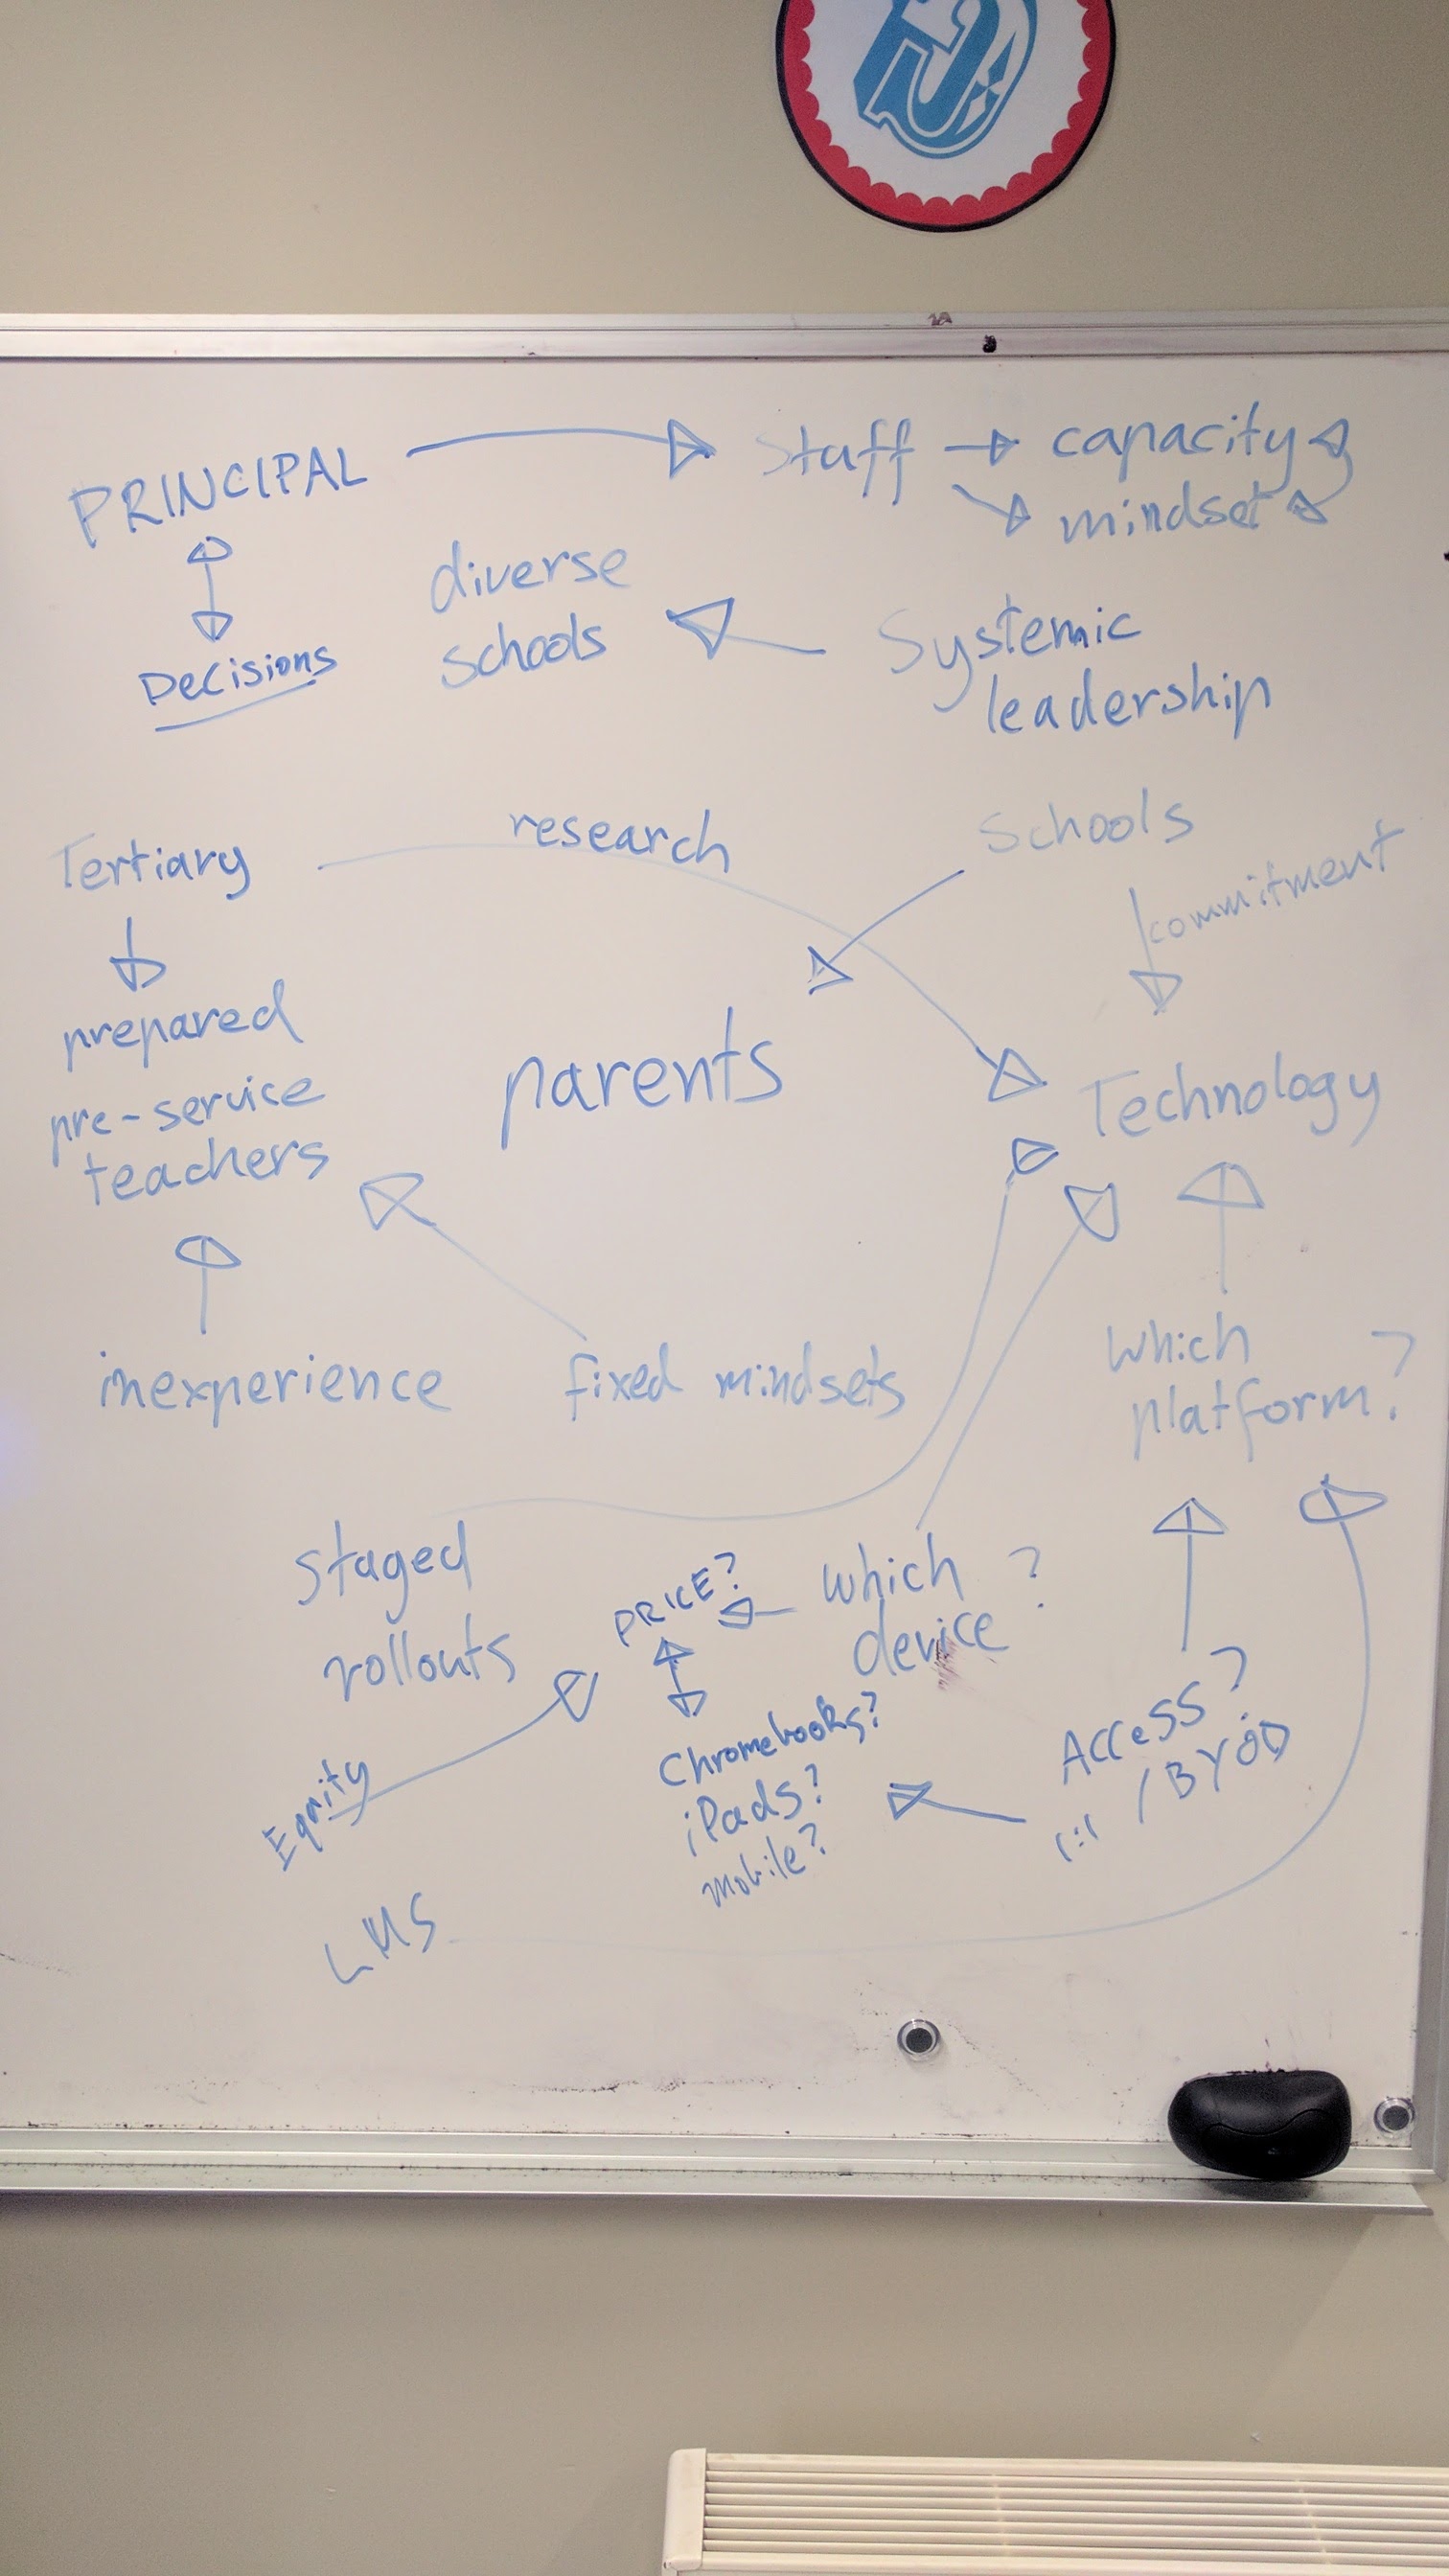 PRINCIPAL
Staff
capacity
mindset
Decisions
diverse
schools
Systemic
leadership
Tertiary
research
Schools
commitment
prepared
pre-service
teachers
parents
Technology
inexperience
fixed mindsets
which ?
platform?
staged
rollouts
PRICE?
which ?
device
Equity
Chromebooks?
iPads?
mobile?
Access?
1:1 / BYOD
LMS